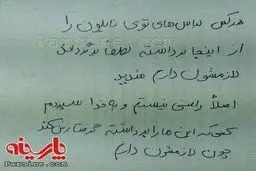 هرکس لباس‌های توی نایلون را
از اینجا برداشته لطفاً برگرداند
لازمشون دارم
اصلاً راضی نیستم و به خدا سپردم
کسی‌که این‌ها را برداشته گرفتارش کند
چون لازمشون دارم
پارسینه
Parsine.com